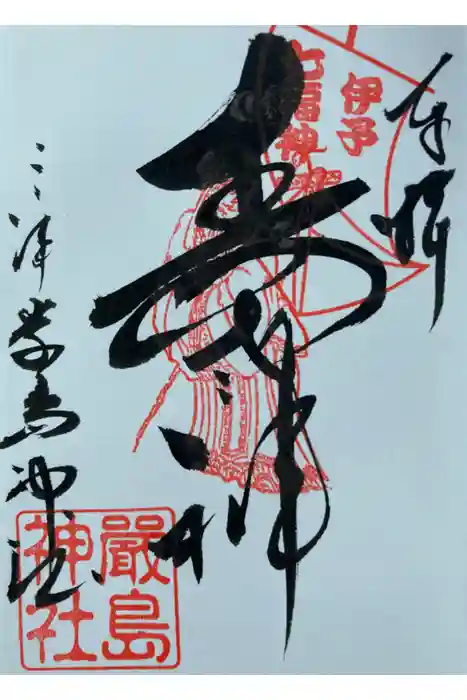 奉拝
伊予
七福神
三津厳島神社
嚴島
神社